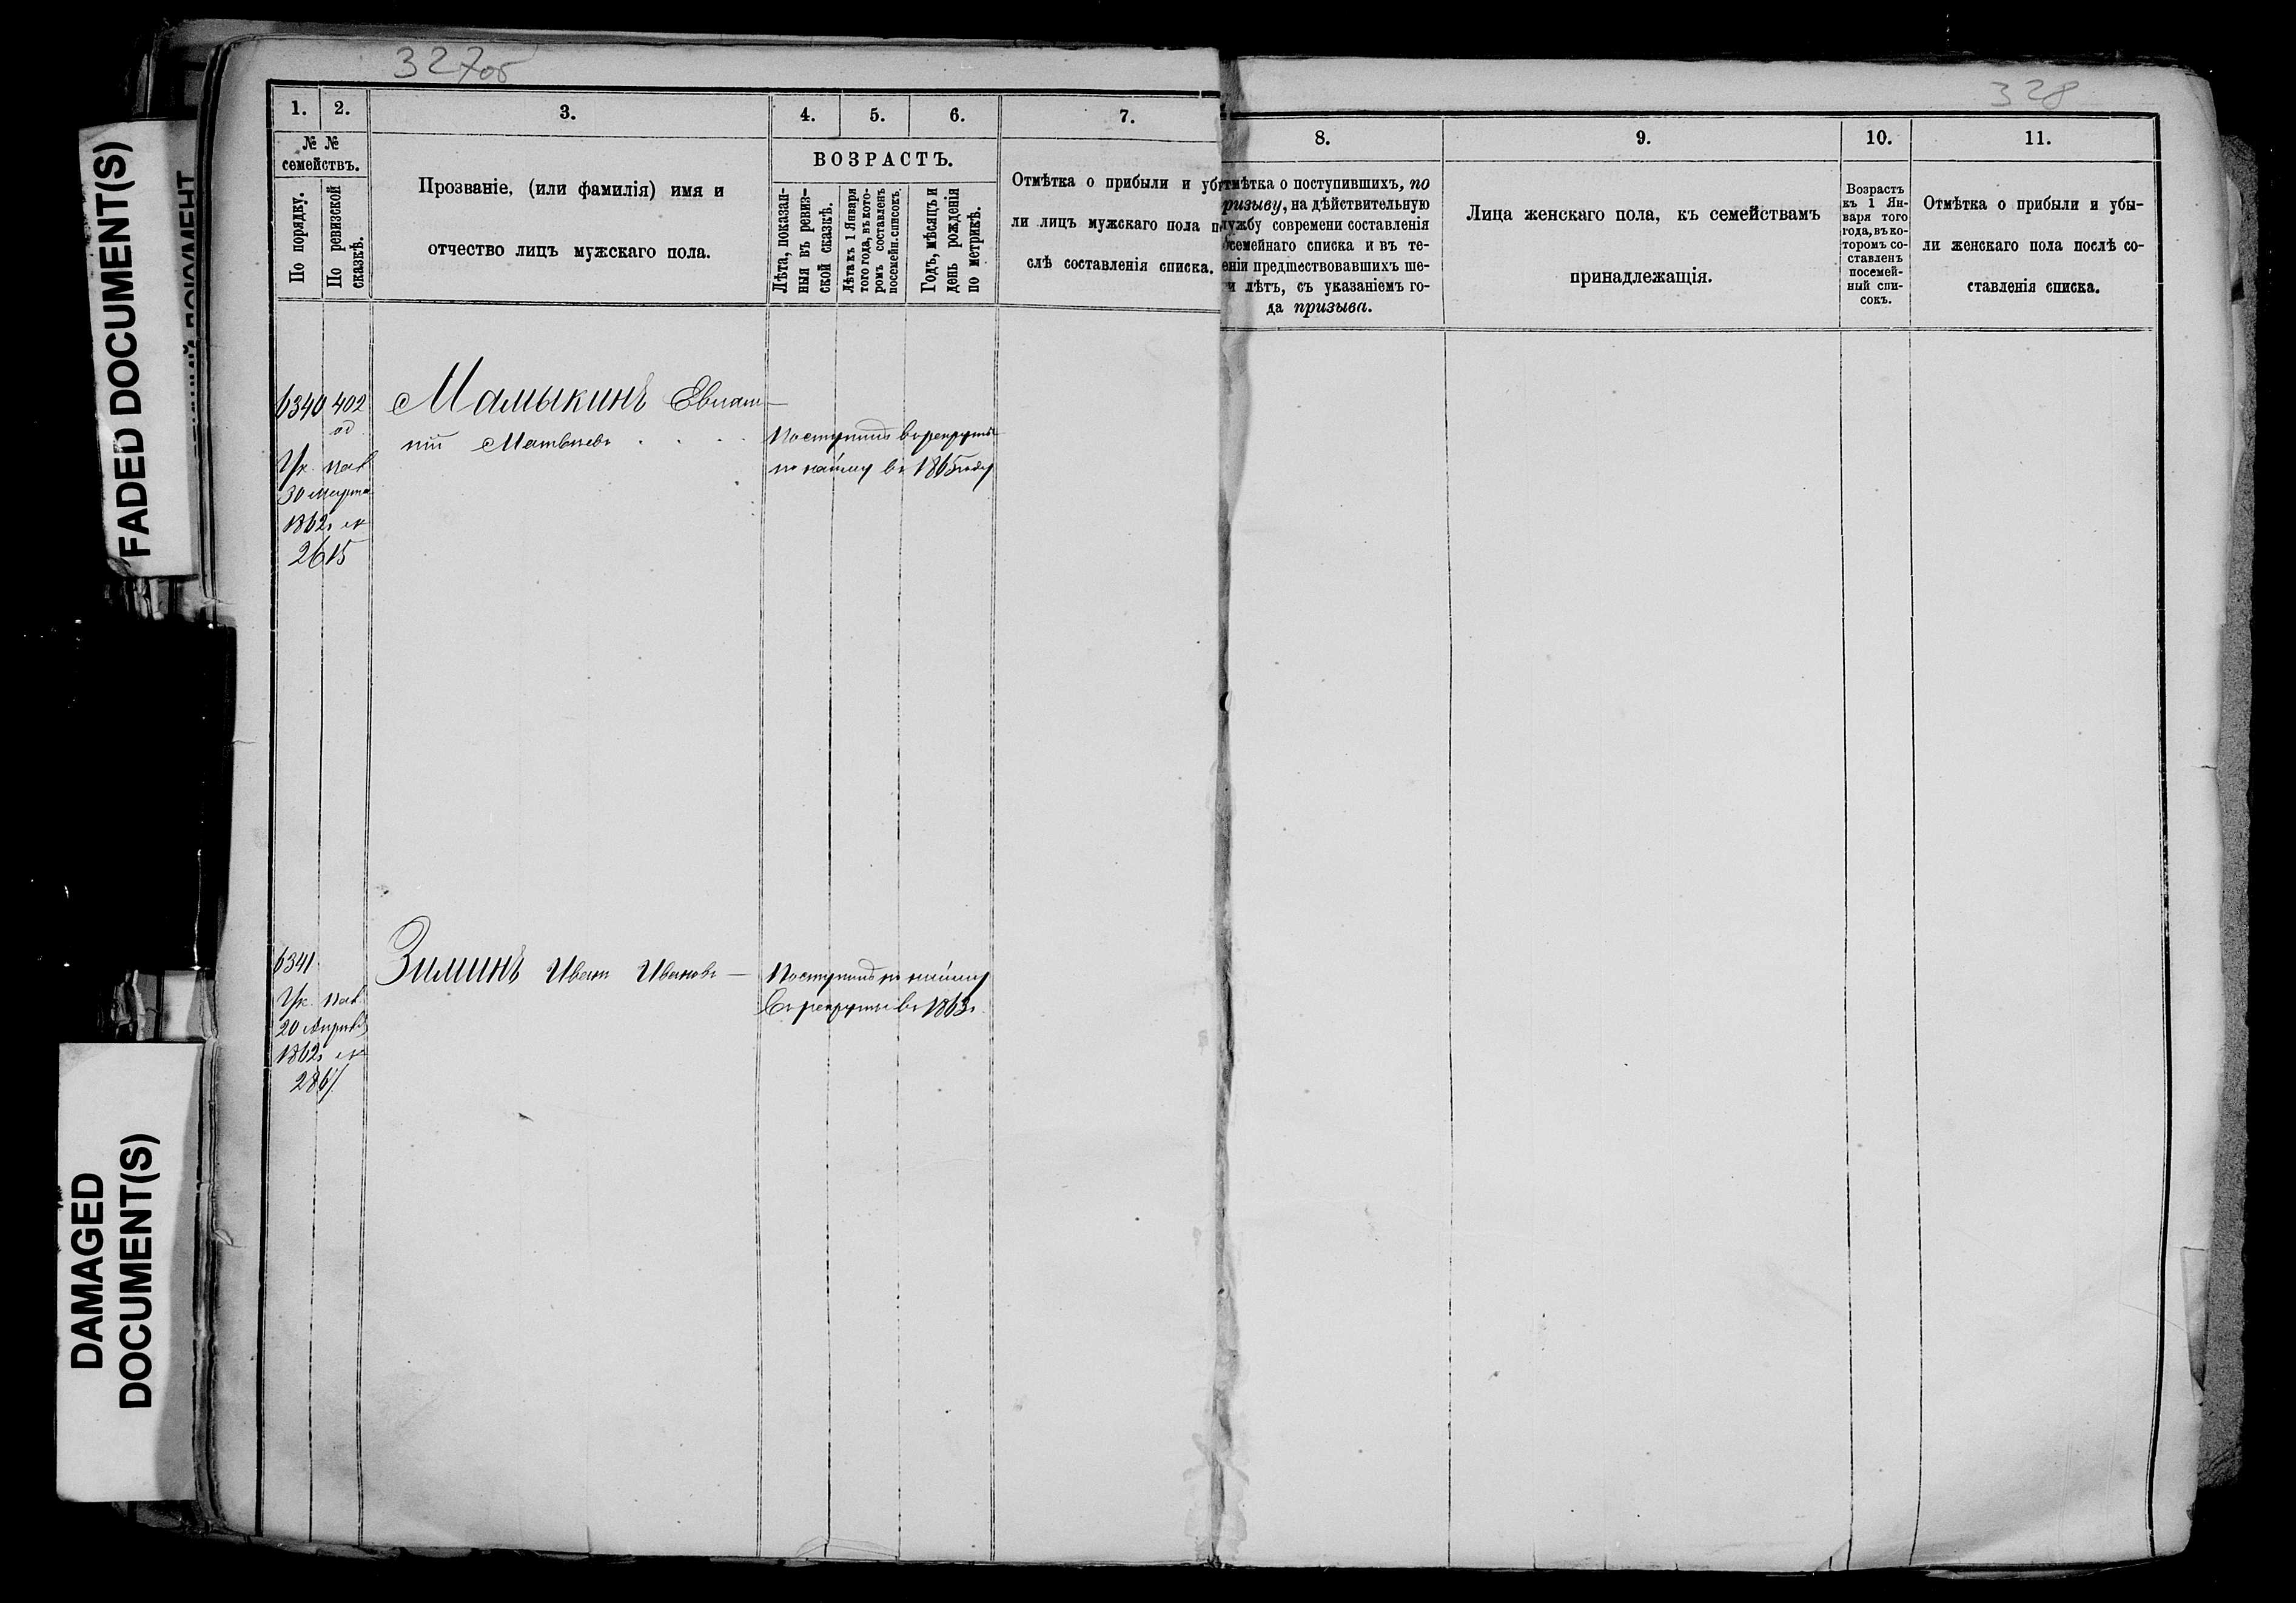 327об
328
FADED DOCUMENT(S)
DAMAGED
DOCUMENT(S)
1. 2. 3. 4. 5. 6. 7.
№ №
семействъ.
По порядку.
По ревизской
сказкѣ.
Прозваніе, (или фамилія) имя и
отчество лицъ мужскаго пола.
ВОЗРАСТЪ.
Лѣта, показан-
ныя въ ревиз-
ской сказкѣ.
Лѣта къ 1 Января
того года, въ кото-
ромъ составленъ
посемейн. списокъ.
Годъ, мѣсяцъ и
день рожденія
по метрикѣ.
Отмѣтка о прибыли и уб
ли лицъ мужскаго пола п
слѣ составленія списка.
8. 9. 10. 11.
тмѣтка о поступившихъ, по
ризыву, на дѣйствительную
лужбу современи составленія
семейнаго списка и въ те-
еніи предшествовавшихъ ше-
и лѣтъ, съ указаніемъ го-
да призыва.
Лица женскаго пола, къ семействамъ
принадлежащія.
Возрастъ
къ 1 Ян-
варя того
года, въ ко-
торомъ со-
ставленъ
посемей-
ный спи-
сокъ.
Отмѣтка о прибыли и убы-
ли женскаго пола послѣ со-
ставленія списка.
6340 402 Мамыкинъ Евпат-
од
пій Матвѣевъ
Поступилъ въ рекруты
по найму въ 1865 году
Ук. пал
30 Марта
1862г №
2615
6341 Зиминъ Иванъ Ивановъ —
Поступилъ по найму
Въ рекруты въ 1863г.
Ук. пал
20 Апрѣля
1862г №